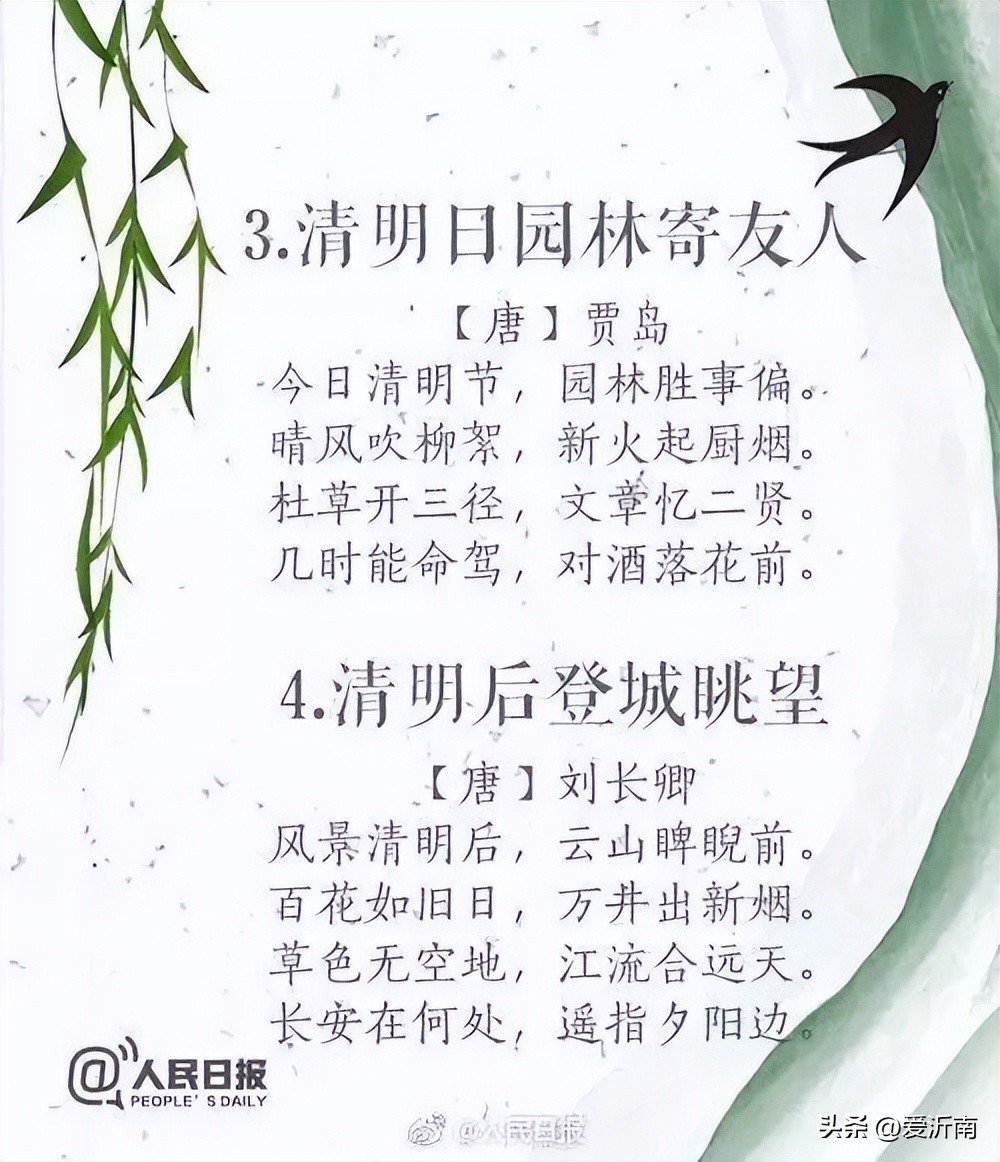 3.清明日园林寄友人
【唐】贾岛
今日清明节，园林胜事偏。
晴风吹柳絮，新火起厨烟。
杜草开三径，文章忆二贤。
几时能命驾，对酒落花前。
4.清明后登城眺望
【唐】刘长卿
风景清明后，云山睥睨前。
百花如旧日，万井出新烟。
草色无空地，江流合远天。
长安在何处，遥指夕阳边。
@人民日报
PEOPLE'S DAILY
@人民日报
头条 @爱沂南